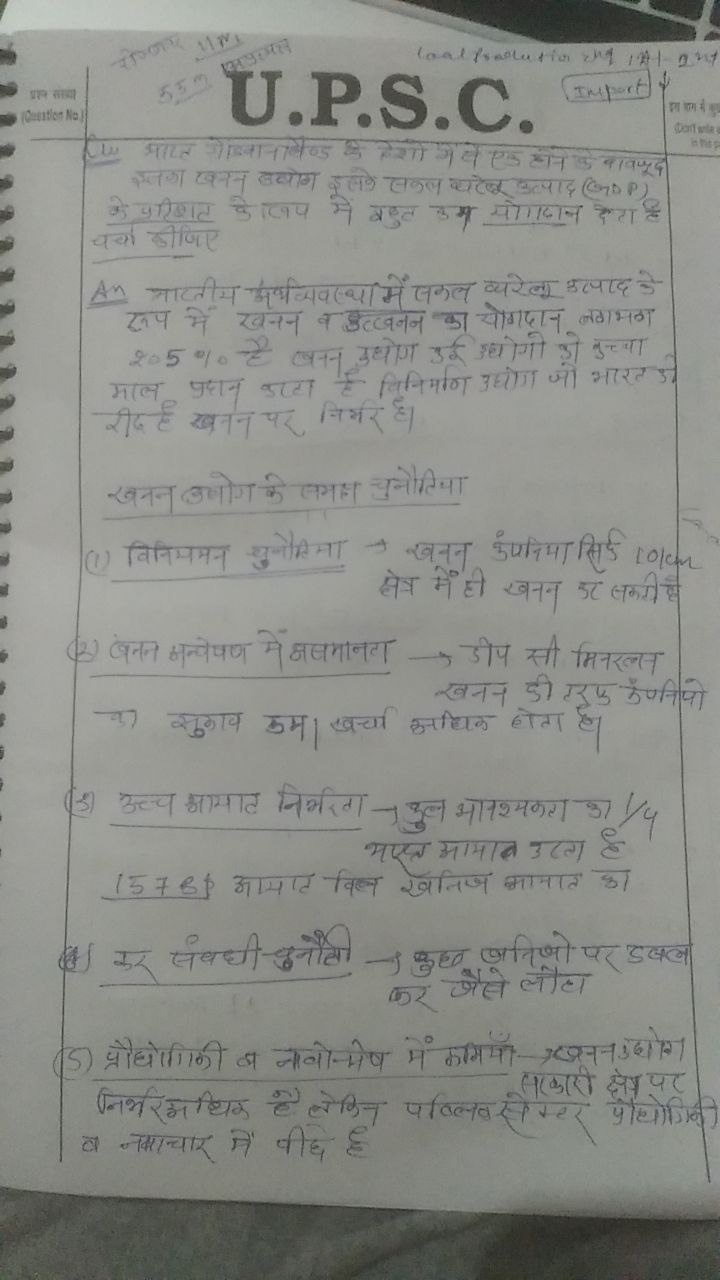 रोजगार 11 M
55 m
Local Production
Import
U.P.S.C.
प्रश्न संख्या
(Question No.)
इस भाग में कुछ
(Don't write
in this p
भारत गोंडवानालैण्ड के देशों में से एक होने के बावजूद
इसका खनन उद्योग इसके सकल घरेलू उत्पाद (GDP)
के प्रतिशत के रूप में बहुत कम योगदान देता है
चर्चा कीजिए
Ans भारतीय अर्थव्यवस्था में सकल घरेलू उत्पाद के
रूप में खनन व उत्खनन का योगदान लगभग
2.5 % है खनन उद्योग कई उद्योगों को कच्चा
माल प्रदान करता है विनिर्माण उद्योग जो भारत की
रीढ है खनन पर निर्भर है।
खनन उद्योग के समक्ष चुनौतिया
(1) विनियमन चुनौतिया → खनन कंपनिया सिर्फ 10 km
क्षेत्र में ही खनन कर सकती है
(2) खनन अन्वेषण में असमानता → डीप सी मिनरल्स
खनन की तरफ कंपनियो
का झुकाव कम। खर्चा अधिक होता है।
(3) उच्च आयात निर्भरता → कुल आवश्यकता का 1/4
भारत आयात करता है
157 B$ आयात बिल खनिज आयात का
(4) कर संबधी चुनौती → कुछ खनिजो पर डबल
कर जैसे लौहा
(5) प्रौद्योगिकी व नवोन्मेष में कमियाँ → खनन उद्योग
सरकारी क्षेत्र पर
निर्भर अधिक है लेकिन पब्लिक सेक्टर प्रौद्योगिकी
व नवाचार में पीछे है